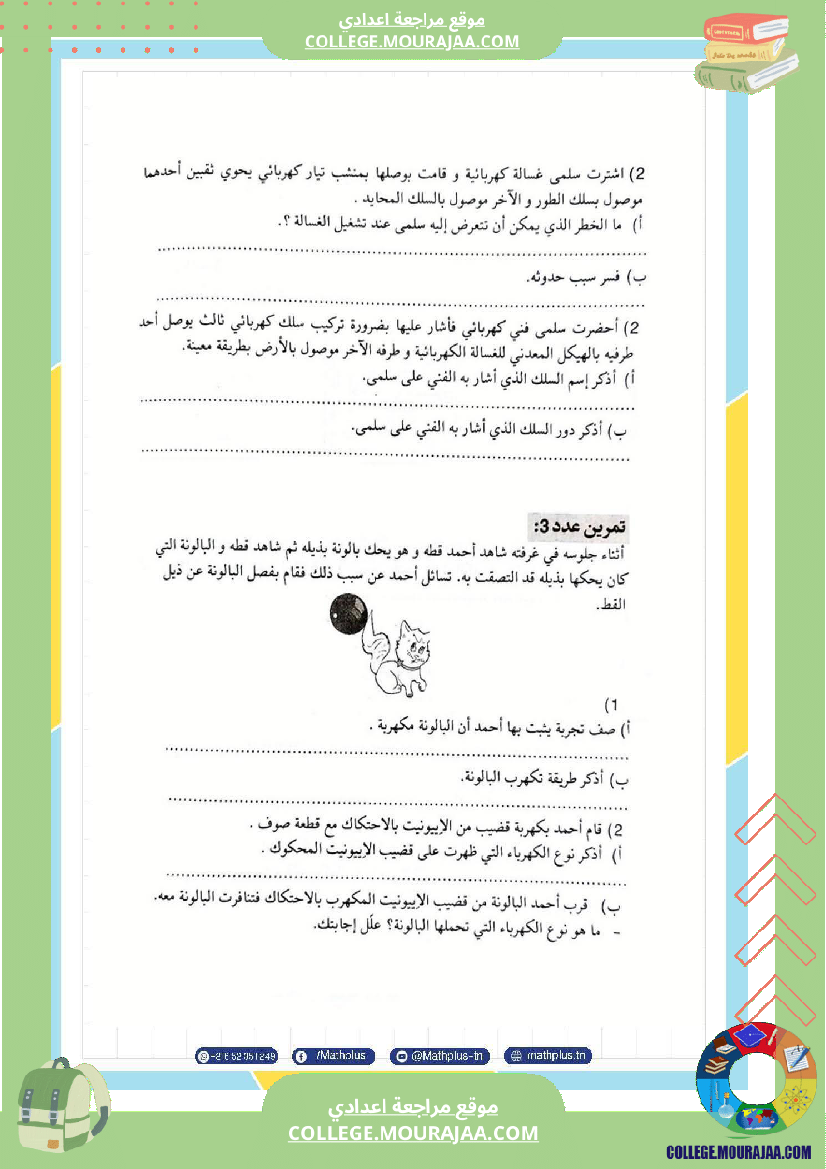 موقع مراجعة اعدادي
COLLEGE.MOURAJAA.COM
2) اشترت سلمى غسالة كهربائية و قامت بوصلها بمنشب تيار كهربائي يحوي ثقبين أحدهما
موصول بسلك الطور و الآخر موصول بالسلك المحايد .
أ) ما الخطر الذي يمكن أن تتعرض إليه سلمى عند تشغيل الغسالة ؟.
ب) فسر سبب حدوثه.
2) أحضرت سلمى فني كهربائي فأشار عليها بضرورة تركيب سلك كهربائي ثالث يوصل أحد
طرفيه بالهيكل المعدني للغسالة الكهربائية و طرفه الآخر موصول بالأرض بطريقة معينة.
أ) أذكر إسم السلك الذي أشار به الفني على سلمى.
ب) أذكر دور السلك الذي أشار به الفني على سلمى.
تمرين عدد 3:
أثناء جلوسه في غرفته شاهد أحمد قطه و هو يحك بالونة بذيله ثم شاهد قطه و البالونة التي
كان يحكها بذيله قد التصقت به. تسائل أحمد عن سبب ذلك فقام بفصل البالونة عن ذيل
القط.
1)
أ) صف تجربة يثبت بها أحمد أن البالونة مكهربة .
ب) أذكر طريقة تكهرب البالونة.
2) قام أحمد بكهربة قضيب من الإيبونيت بالاحتكاك مع قطعة صوف .
أ) أذكر نوع الكهرباء التي ظهرت على قضيب الإيبونيت المحكوك .
ب) قرب أحمد البالونة من قضيب الإيبونيت المكهرب بالاحتكاك فتنافرت البالونة معه.
- ما هو نوع الكهرباء التي تحملها البالونة؟ علّل إجابتك.
/Mathplus
@Mathplus-tn
mathplus.tn
موقع مراجعة اعدادي
COLLEGE.MOURAJAA.COM
COLLEGE.MOURAJAA.COM